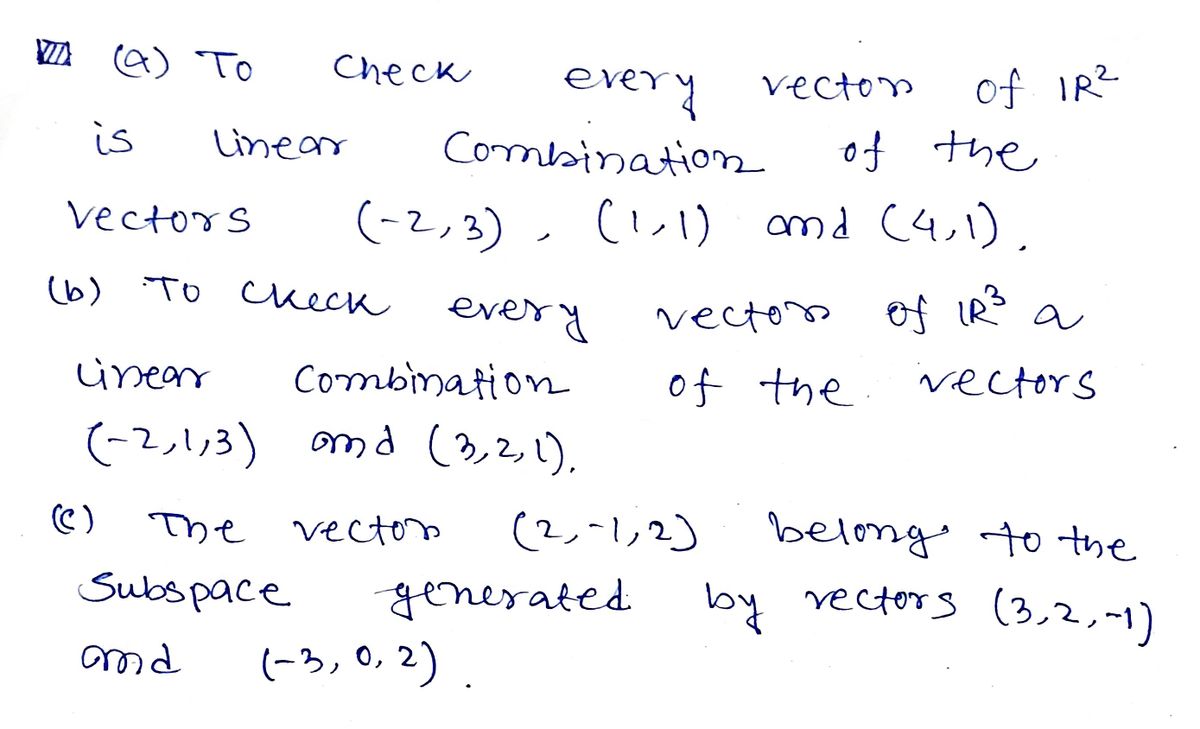 (a) To check every vector of IR²
is linear combination of the
vectors (-2,3), (1,1) and (4,1).
(b) To check every vector of IR³ a
linear combination of the vectors
(-2,1,3) and (3,2,1).
(c) The vector (2,-1,2) belongs to the
Subspace generated by vectors (3,2,-1)
and (-3,0,2).